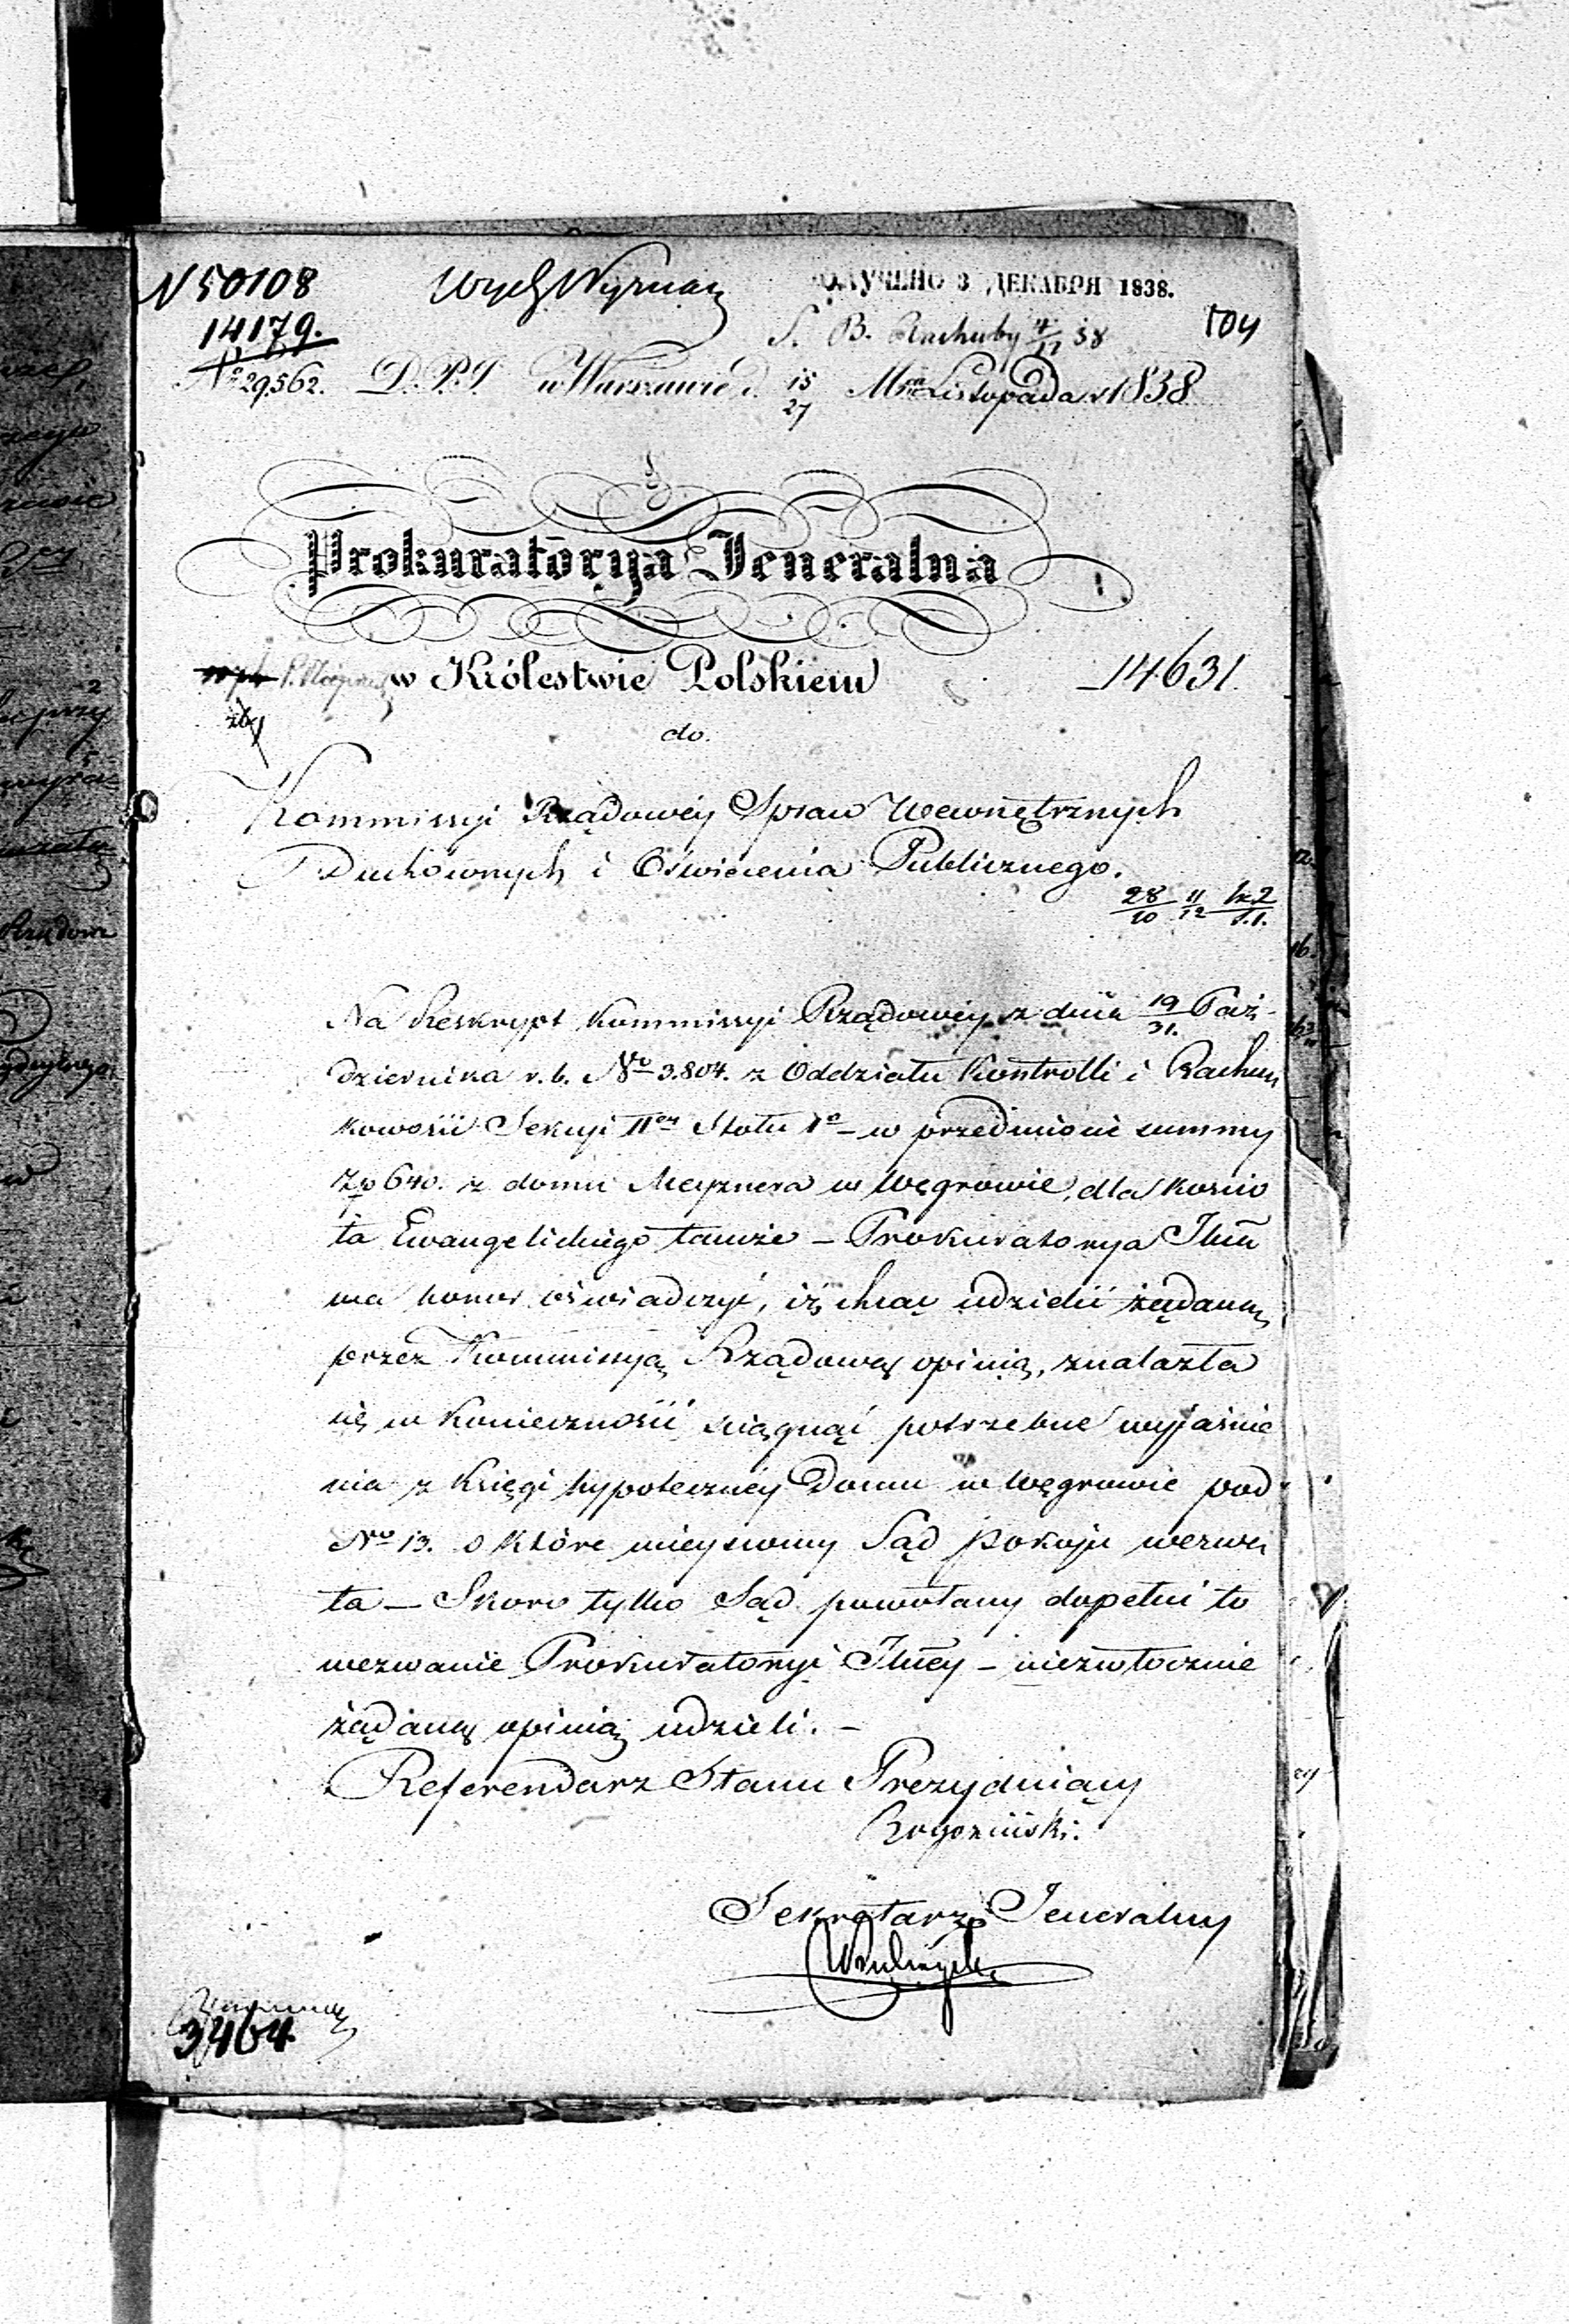 N 50108
Wydz Wyznań
ПОЛУЧЕНО 3 ДЕКАБРЯ 1838.
14179.
S. B. Rachuby 4/12 38
104
No 29562. D.P.S. w Warszawie d. 15/27 Mca Listopada 1838
Prokuratorya Jeneralna
w Królestwie Polskiem
14631
do.
Kommissyi Rządowéy Spraw Wewnętrznych
Duchownych i Oświecenia Publicznego.
28/10 11/12
Na Reskrypt Kommissyi Rządowéy z dnia 19/31. Paź-
dziernika r. b. No 3.804. z Oddziału Kontrolli i Rachun
kowości Sekcyi IIey Stołu 1o – w przedmiocie summy
Zp 640. z domu Meyznera w Węgrowie, dla kościo
ła Ewangelickiego tamże – Prokuratorya Jlna
ma honor oświadczyć, iż chcąc udzielić żądaną
przez Kommissyą Rządową opinią, znalazła
się w konieczności sciągnąć potrzebne wyjaśnie
nia z księgi hypoteczney Domu w Węgrowie pod
No 13. o które mieyscowy Sąd pokoju wezwa
ła – Skoro tylko Sąd powołany dopełni to
wezwanie Prokuratoryi Jlney – niezwłocznie
żądaną opinią udzieli. –
Referendarz Stanu Prezyduiący
Rogoziński.
Sekretarz Jeneralny
3464